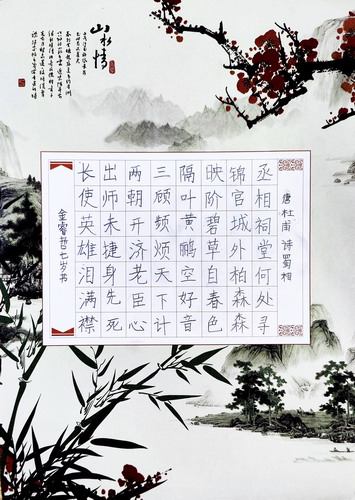 山水情
唐杜甫诗蜀相
丞相祠堂何处寻
锦官城外柏森森
映阶碧草自春色
隔叶黄鹂空好音
三顾频烦天下计
两朝开济老臣心
出师未捷身先死
长使英雄泪满襟
金睿哲七岁书